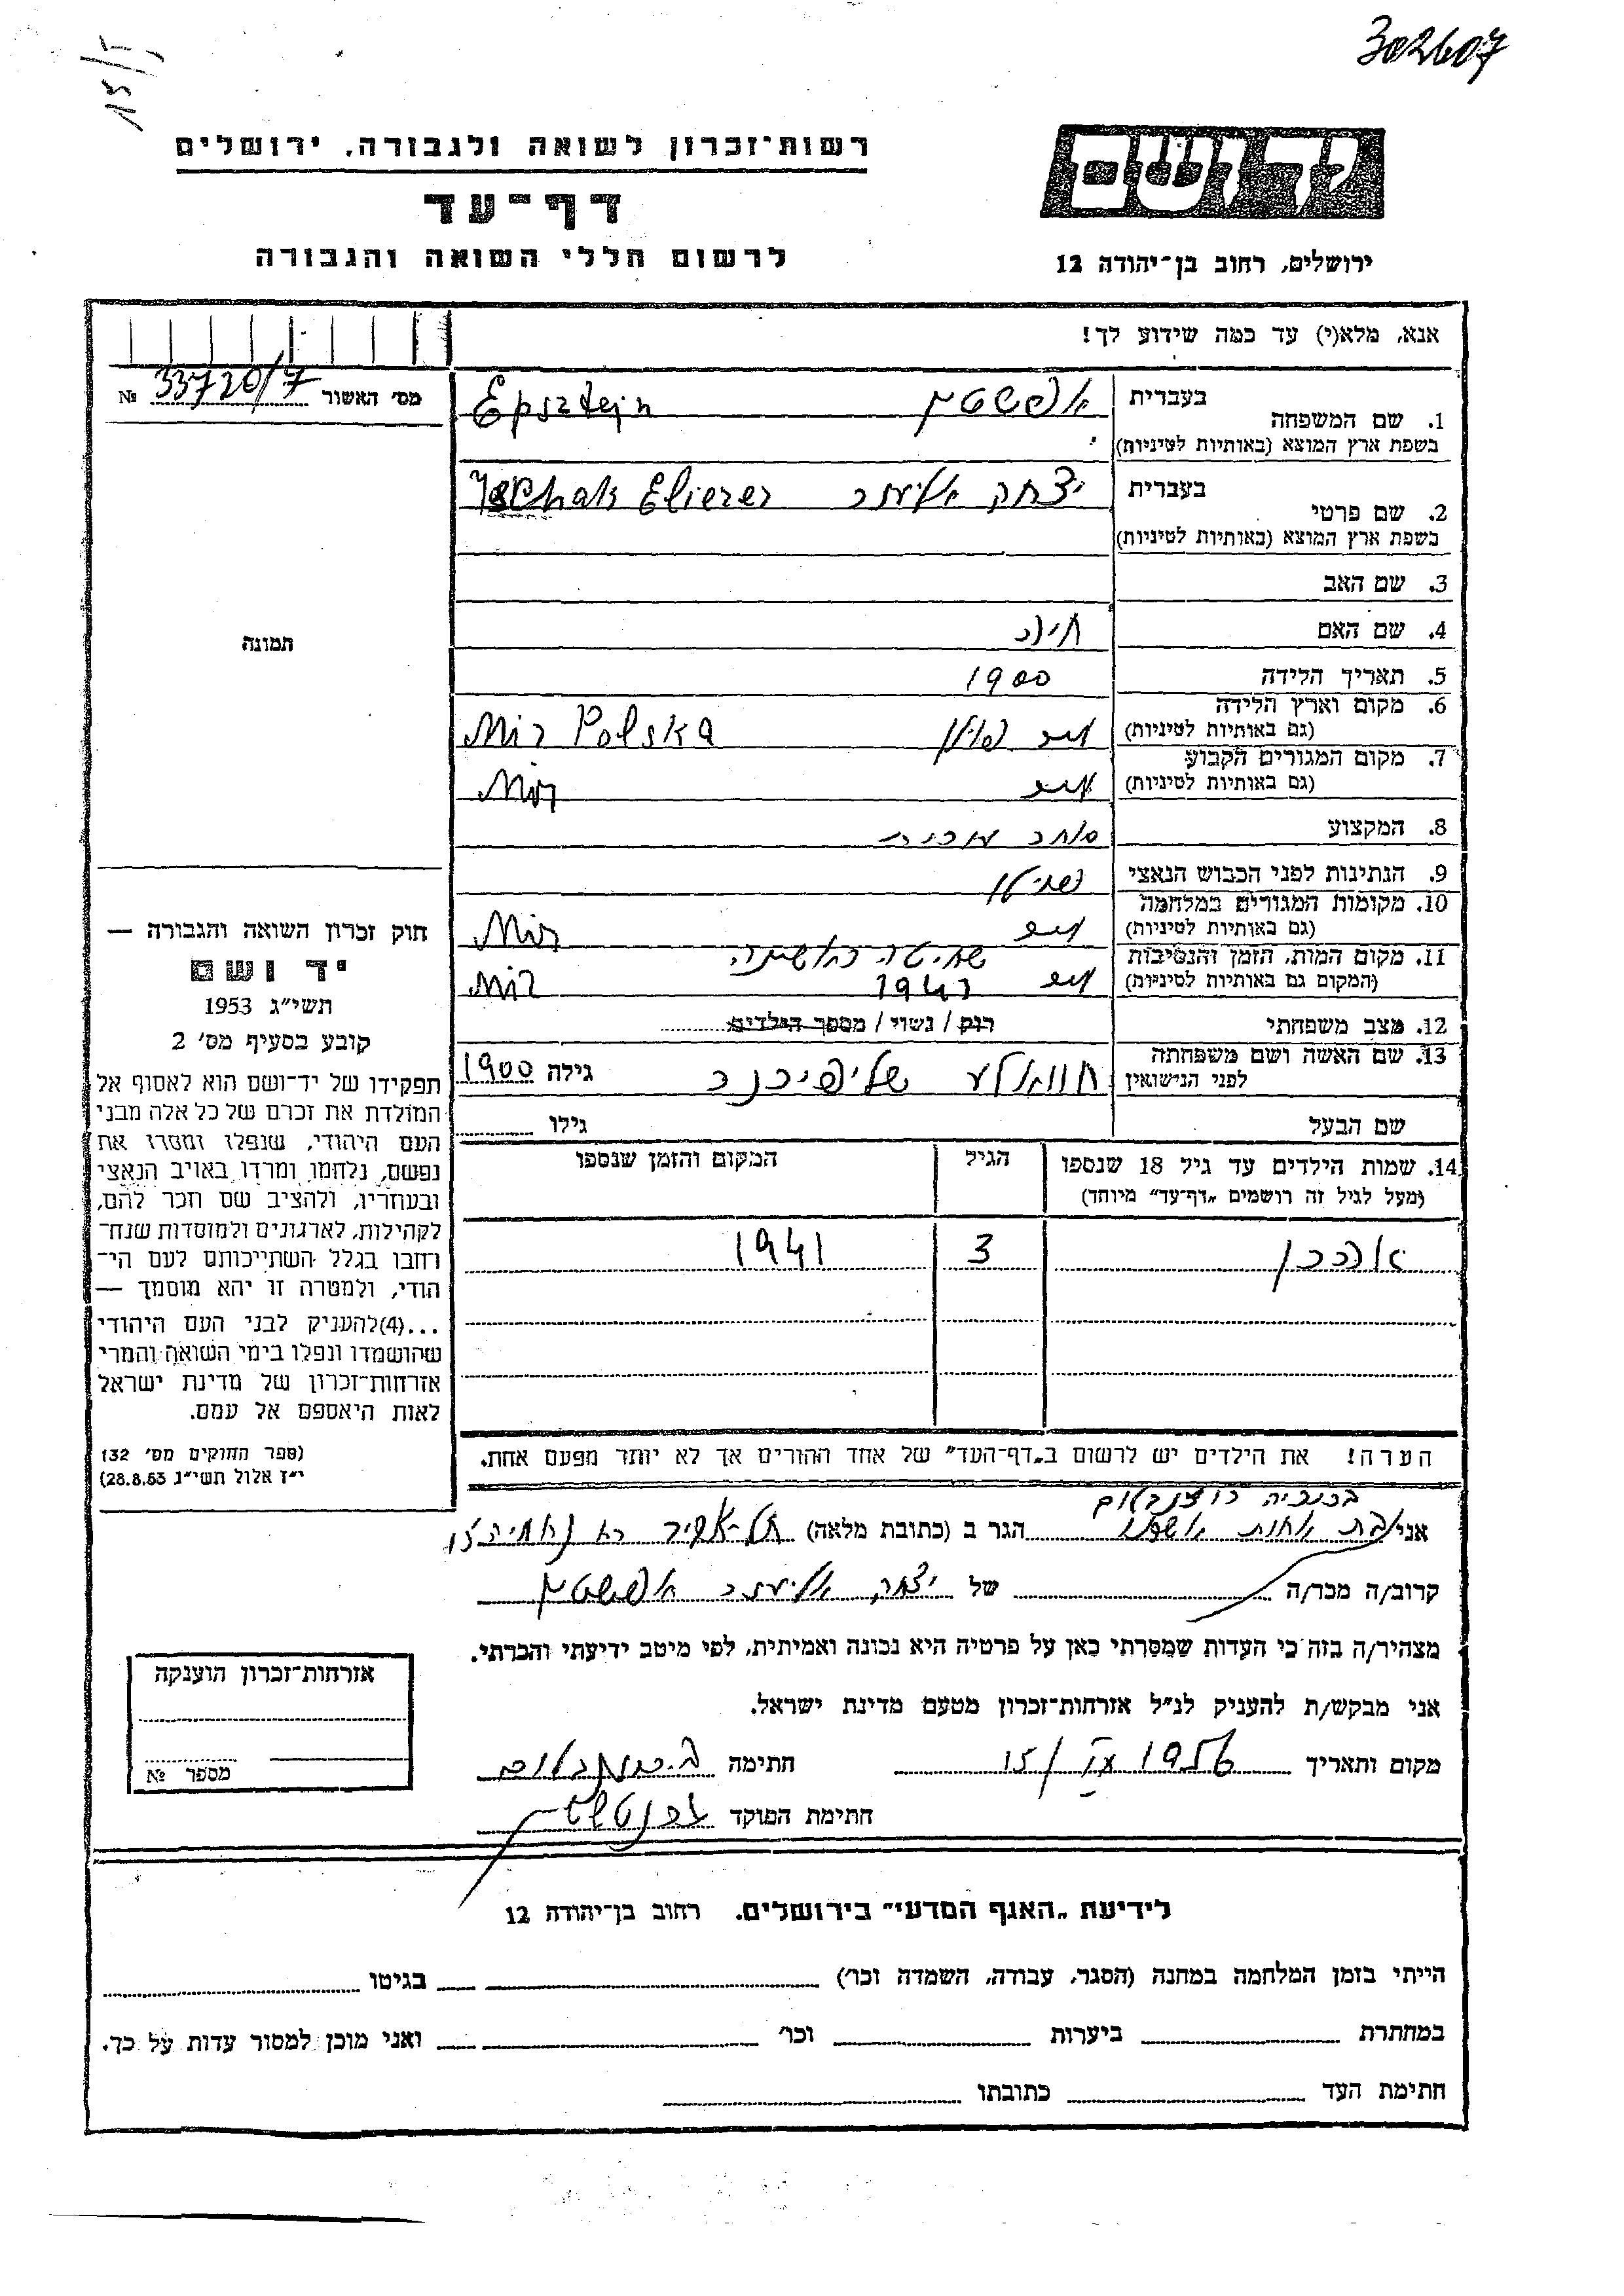 302607
15/5
יד ושם
ירושלים, רחוב בן־יהודה 12
רשות־זכרון לשואה ולגבורה, ירושלים
דף־עד
לרשום חללי השואה והגבורה
אנא, מלא(י) עד כמה שידוע לך!
מס׳ האשור 33720/7 №
תמונה
1. שם המשפחה בעברית אפשטין Epsztejn
בשפת ארץ המוצא (באותיות לטיניות)
2. שם פרטי בעברית יצחק אליעזר Elierer
בשפת ארץ המוצא (באותיות לטיניות)
3. שם האב
4. שם האם
5. תאריך הלידה 1900
6. מקום וארץ הלידה מיר פולין Mir Polska
(גם באותיות לטיניות)
7. מקום המגורים הקבוע מיר Mir
(גם באותיות לטיניות)
8. המקצוע סוחר מכונות
9. הנתינות לפני הכבוש הנאצי
10. מקומות המגורים במלחמה מיר Mir
(גם באותיות לטיניות)
11. מקום המות, הזמן והנסיבות שחיטה ראשונה
(המקום גם באותיות לטיניות) מיר 1941 Mir
12. מצב משפחתי רוק / נשוי / מספר הילדים
13. שם האשה ושם משפחתה
לפני הנישואין גילה 1900
שם הבעל גילו
14. שמות הילדים עד גיל 18 שנספו הגיל המקום והזמן שנספו
(מעל לגיל זה רושמים „דף־עד” מיוחד)
3 1941
הערה! את הילדים יש לרשום ב„דף־העד” של אחד ההורים אך לא יותר מפעם אחת.
חוק זכרון השואה והגבורה —
יד ושם
תשי״ג 1953
קובע בסעיף מס׳ 2
תפקידו של יד־ושם הוא לאסוף אל
המולדת את זכרם של כל אלה מבני
העם היהודי, שנפלו ומסרו את
נפשם, נלחמו ומרדו באויב הנאצי
ובעוזריו, ולהציב שם וזכר להם,
לקהילות, לארגונים ולמוסדות שנח־
רחבו בגלל השתייכותם לעם הי־
הודי, ולמטרה זו יהא מוסמך —
...(4)להעניק לבני העם היהודי
שהושמדו ונפלו בימי השואה והמרי
אזרחות־זכרון של מדינת ישראל
לאות היאספם אל עמם.
(ספר החוקים מס׳ 132
י״ז אלול תשי״ג 28.8.53)
אני בת אחות הגר ב (כתובת מלאה) תל-אביב
קרוב/ה מכר/ה של יצחק אליעזר אפשטין
מצהיר/ה בזה כי העדות שמסרתי כאן על פרטיה היא נכונה ואמיתית, לפי מיטב ידיעתי והכרתי.
אני מבקש/ת להעניק לנ״ל אזרחות־זכרון מטעם מדינת ישראל.
מקום ותאריך 1956 חתימה
חתימת הפוקד
אזרחות־זכרון הוענקה
מספר №
לידיעת „האגף המדעי” בירושלים. רחוב בן־יהודה 12
הייתי בזמן המלחמה במחנה (הסגר, עבודה, השמדה וכו׳) בגיטו
במחתרת ביערות וכו׳ ואני מוכן למסור עדות על כך.
חתימת העד כתובתו